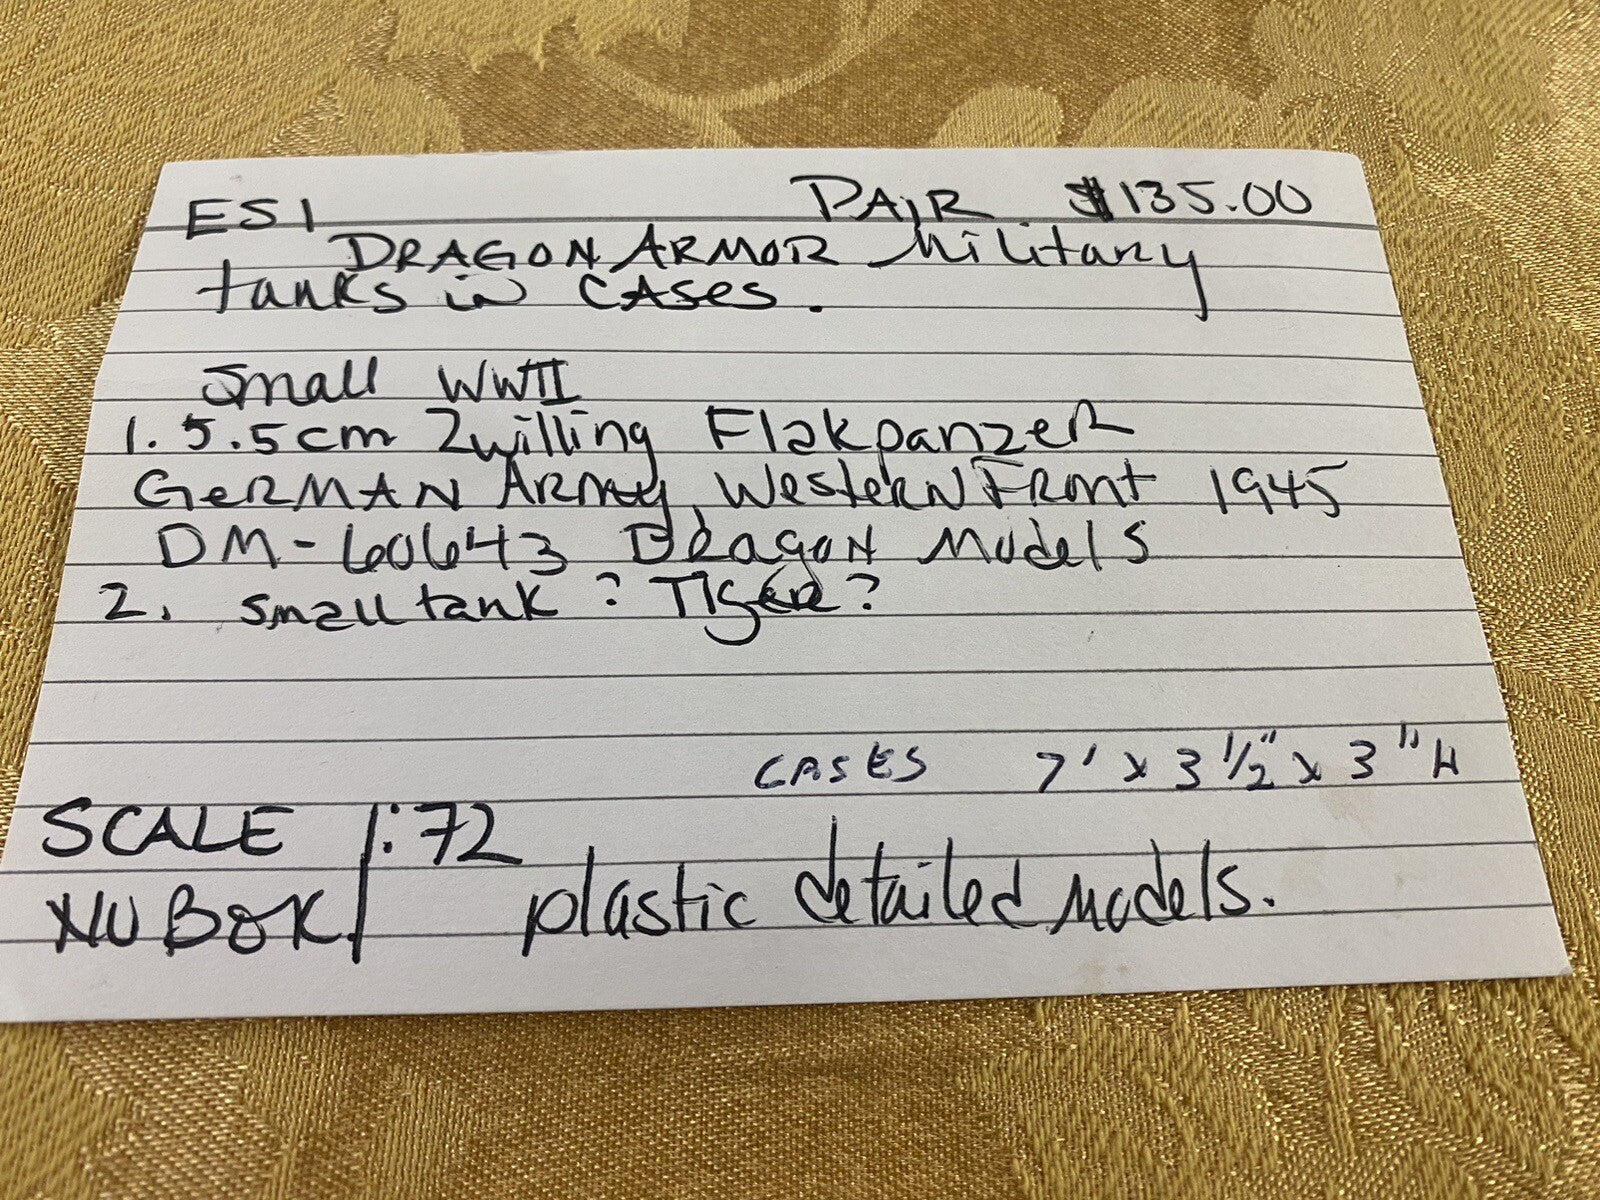 ES1 PAIR $135.00
DRAGON ARMOR Military
tanks in CASES.
Small WWII
1. 5.5cm Zwilling Flakpanzer
GERMAN ARMY, WESTERN FRONT 1945
DM-60643 Dragon Models
2. small tank ? TIGER?
CASES 7' x 3 1/2" x 3" H
SCALE 1:72
NO BOX / plastic detailed models.